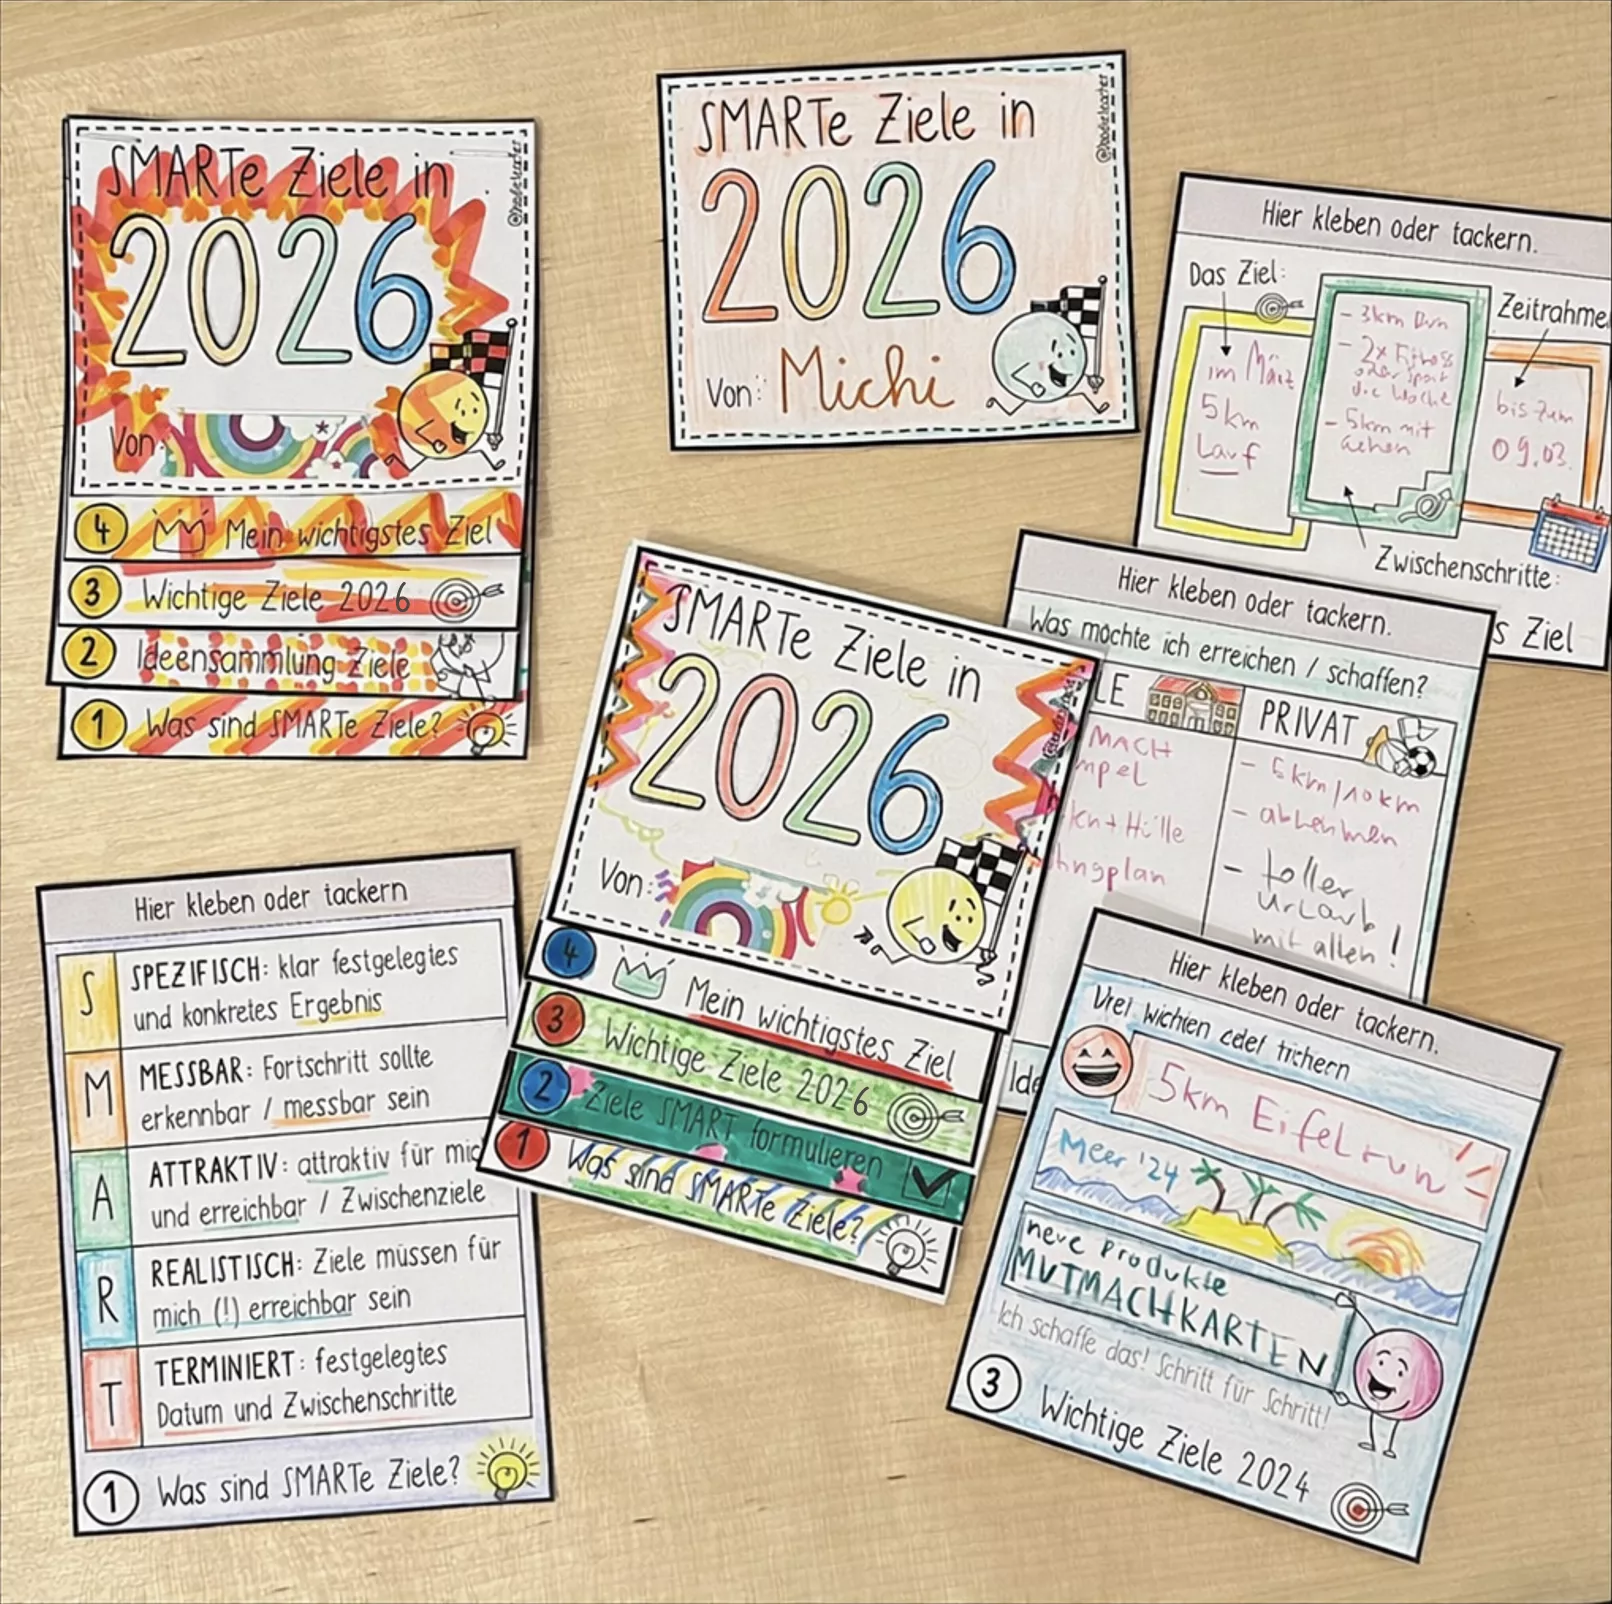 SMARTe Ziele in
2026
Von:
4 Mein wichtigstes Ziel
3 Wichtige Ziele 2026
2 Ideensammlung Ziele
1 Was sind SMARTe Ziele?
SMARTe Ziele in
2026
Von: Michi
Hier kleben oder tackern.
Das Ziel:
im März
5km
Lauf
- 3km
- 2x
oder Sport
die Woche
- 5km mit
Gehen
Zeitrahme
bis zum
09.03.
Zwischenschritte:
s Ziel
Hier kleben oder tackern.
Was möchte ich erreichen / schaffen?
LE
MACH
mpel
ken + Hülle
hngplan
PRIVAT
- 5km/10km
- abnehmen
- toller
Urlaub
mit allen!
Ide
SMARTe Ziele in
2026
Von:
4 Mein wichtigstes Ziel
3 Wichtige Ziele 2026
2 Ziele SMART formulieren
1 Was sind SMARTe Ziele?
Hier kleben oder tackern
S SPEZIFISCH: klar festgelegtes
und konkretes Ergebnis
M MESSBAR: Fortschritt sollte
erkennbar / messbar sein
A ATTRAKTIV: attraktiv für mic
und erreichbar / Zwischenziele
R REALISTISCH: Ziele müssen für
mich (!) erreichbar sein
T TERMINIERT: festgelegtes
Datum und Zwischenschritte
1 Was sind SMARTe Ziele?
Hier kleben oder tackern.
5km Eifelrun
Meer '24
neue Produkte
MUTMACHKARTEN
Ich schaffe das! Schritt für Schritt!
3 Wichtige Ziele 2024